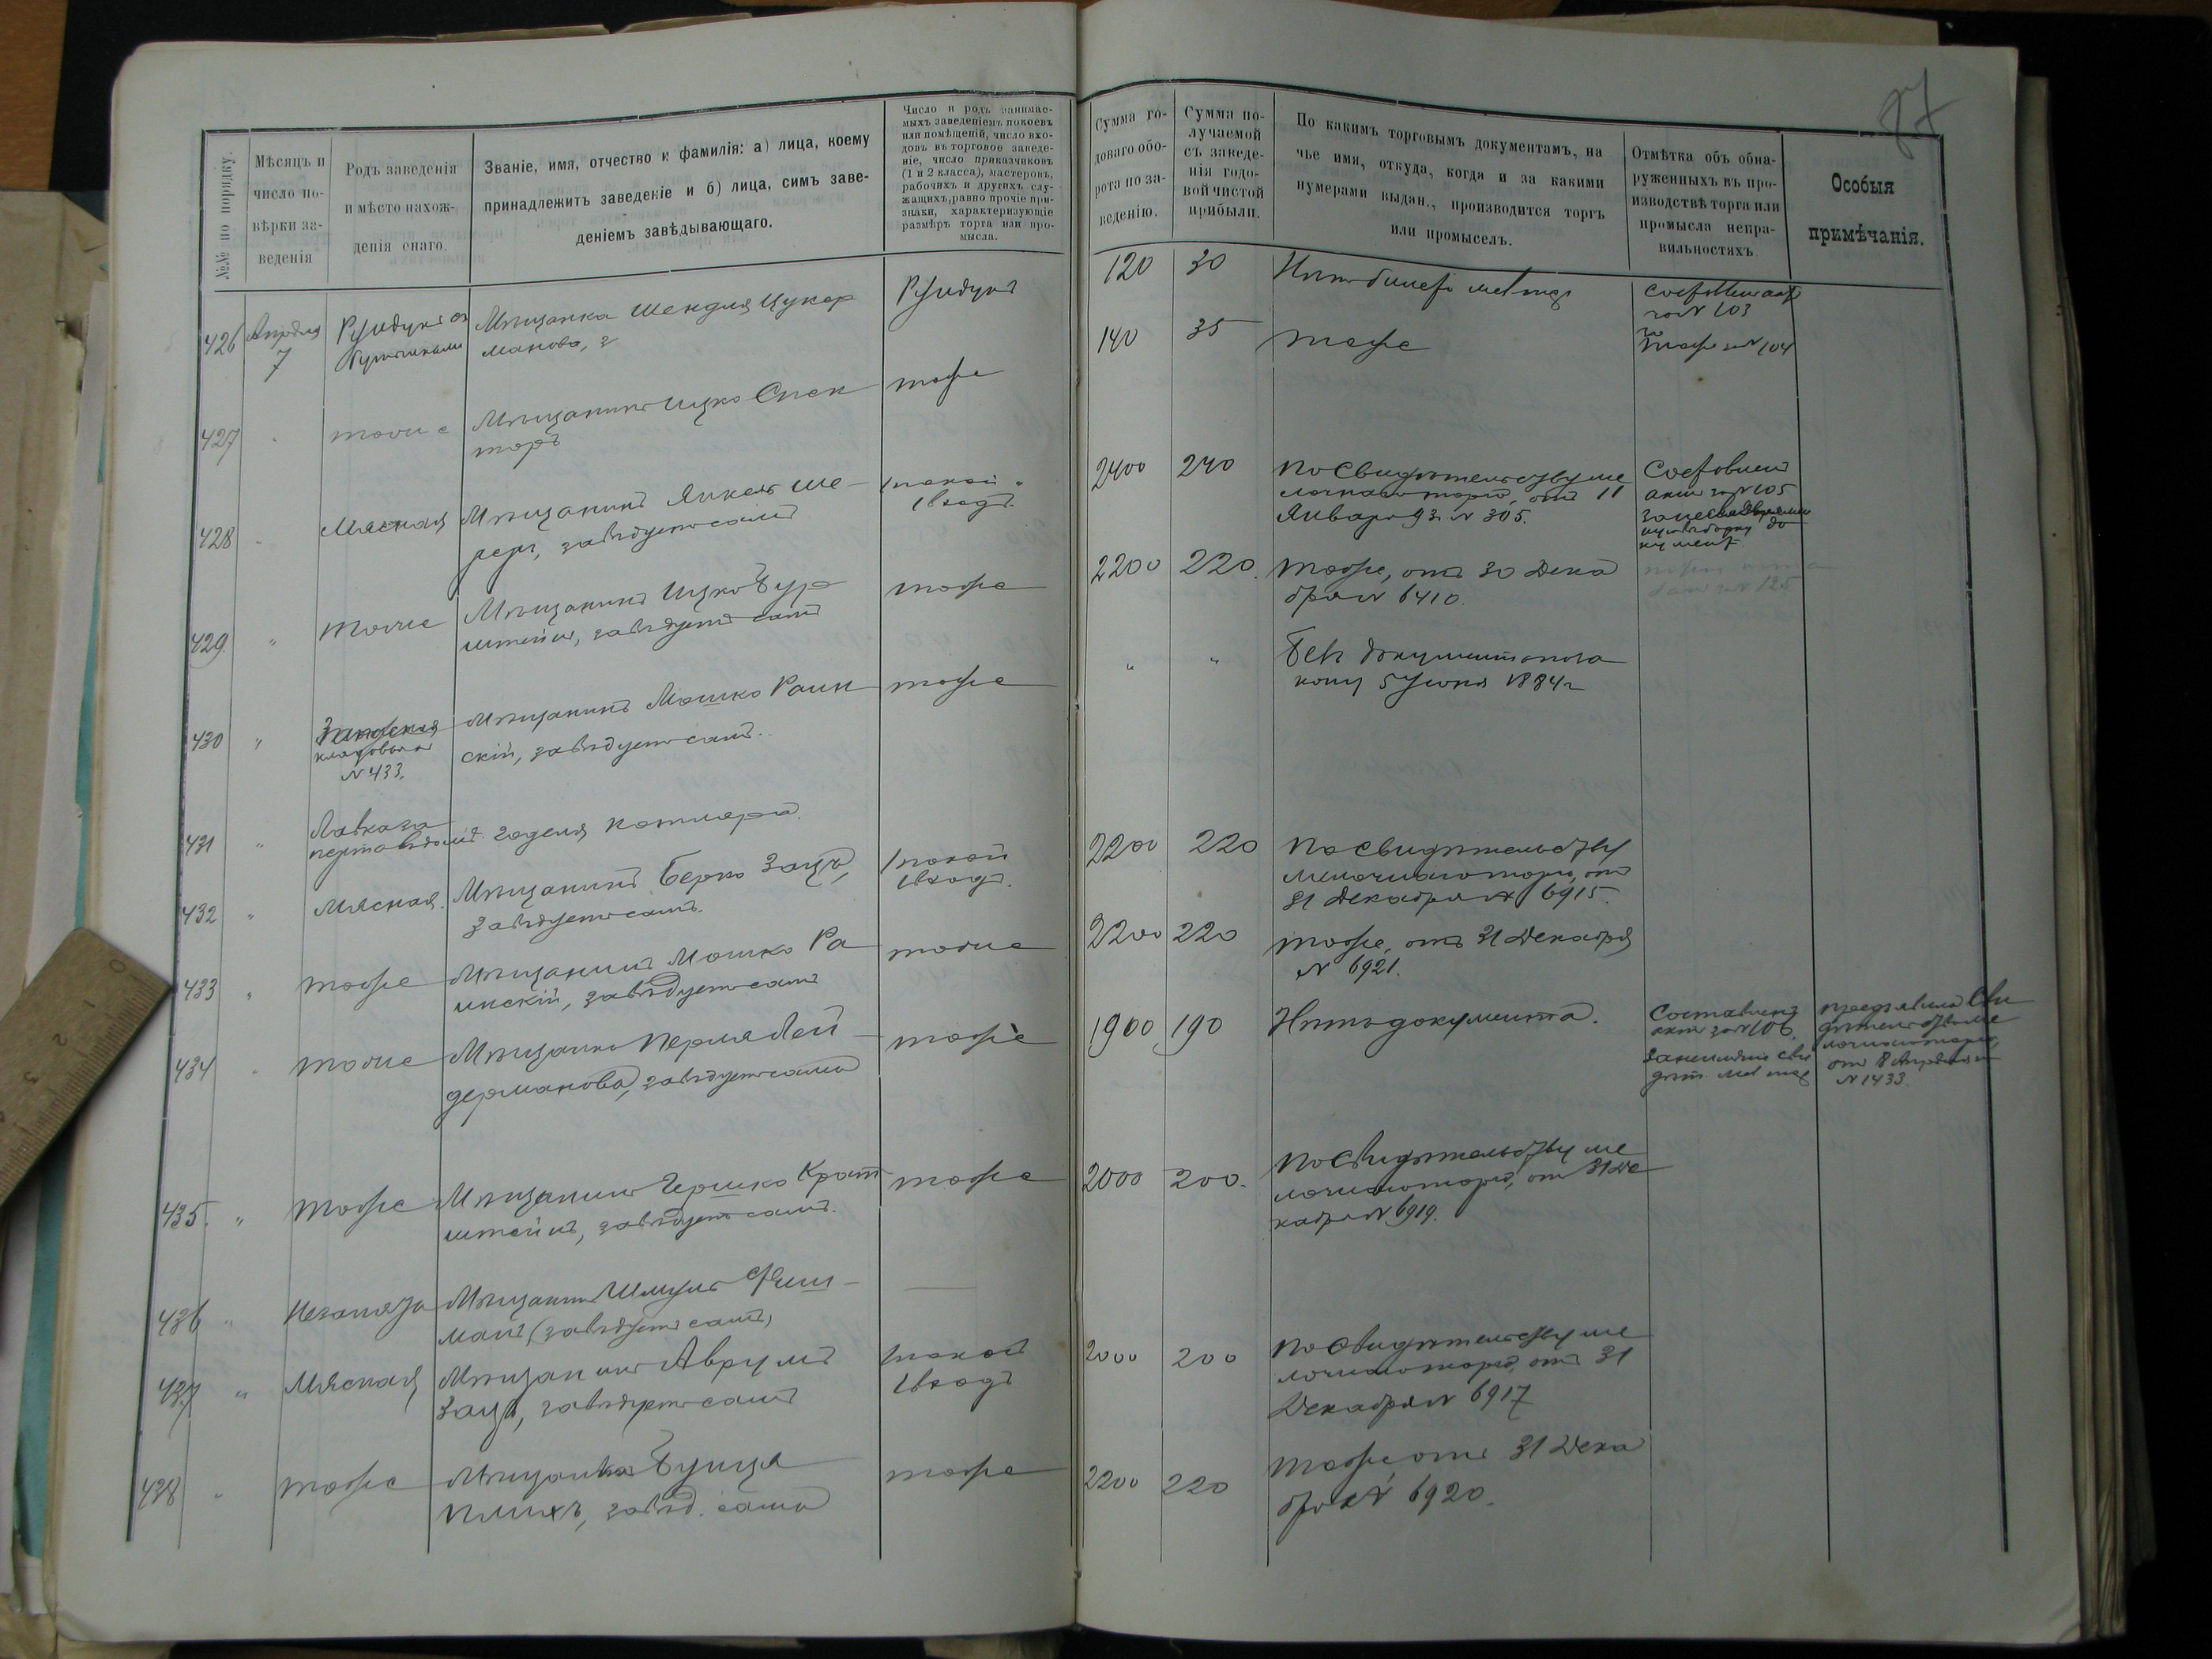 87
№№ по порядку.
Мѣсяцъ и
число по-
вѣрки за-
веденія
Родъ заведенія
и мѣсто нахож-
денія онаго.
Званіе, имя, отчество и фамилія: а) лица, коему
принадлежитъ заведеніе и б) лица, симъ заве-
деніемъ завѣдывающаго.
Число и родъ занимае-
мыхъ заведеніемъ покоевъ
или помѣщеній, число вхо-
довъ въ торговое заведе-
ніе, число приказчиковъ
(1 и 2 класса), мастеровъ,
рабочихъ и другихъ слу-
жащихъ, равно прочіе при-
знаки, характеризующіе
размѣръ торга или про-
мысла.
Сумма го-
доваго обо-
рота по за-
веденію.
Сумма по-
лучаемой
съ заведе-
нія годо-
вой чистой
прибыли.
По какимъ торговымъ документамъ, на
чье имя, откуда, когда и за какими
нумерами выдан., производится торгъ
или промыселъ.
Отмѣтка объ обна-
руженныхъ въ про-
изводствѣ торга или
промысла непра-
вильностяхъ.
Особыя
примѣчанія.
426 Апрѣля
7
Мѣщанка Шендля Цукер
манова,
120 30
№ 103
427 тоже Мѣщанинъ Ицко Спек
торъ
тоже
140 35 тоже
тоже за № 104
428 Мясная Мѣщанинъ Янкель Ше-
реръ, завѣдуетъ самъ
1 покой
1 входъ
2400 240 По свидѣтельству ме
лочнаго торга, отъ 11
Января 93 г. № 305.
Составленъ
актъ за № 105
429 " тоже Мѣщанинъ Ицко Бур
штейнъ, завѣдуетъ самъ
тоже
2200 220. тоже, отъ 30 Дека
бря № 6410.
430 " кладовая
№ 433.
Мѣщанинъ Мошко Раин
скій, завѣдуетъ самъ.
тоже
" " Безъ документа по за
кону 5 Іюня 1884 г
431 " Лавка за
перта Годеля Котляра.
432 " Мясная. Мѣщанинъ Берко Зацъ,
завѣдуетъ самъ.
1 покой
1 входъ.
2200 220 По свидѣтельству
мелочнаго торга, отъ
31 Декабря № 6915.
433 " тоже Мѣщанинъ Мошко Ра
инскій, завѣдуетъ самъ
тоже
2200 220 тоже, отъ 31 Декабря
№ 6921.
434 тоже Мѣщанка Перля Лей
дерманова, завѣдуетъ сама
тоже
1900 190 Нѣтъ документа.
Составленъ
актъ за № 106.
предъявила сви
дѣтельство ме
лочнаго торга
отъ 8 Апрѣля
№ 1433.
435. " тоже Мѣщанинъ Гершко Крот
штейнъ, завѣдуетъ самъ.
тоже
2000 200. По свидѣтельству ме
лочнаго торга, отъ 31 Де
кабря № 6919.
436 " Мѣщанинъ Шмуль Фиш-
манъ, завѣдуетъ самъ,
437 " Мясная Мѣщанинъ Аврумъ
Зацъ, завѣдуетъ самъ
1 покой
1 входъ
2000 200 По свидѣтельству ме
лочнаго торга, отъ 31
Декабря № 6917
438 тоже Мѣщанка
завѣд. сама
тоже
2200 220 тоже отъ 31 Дека
бря № 6920.